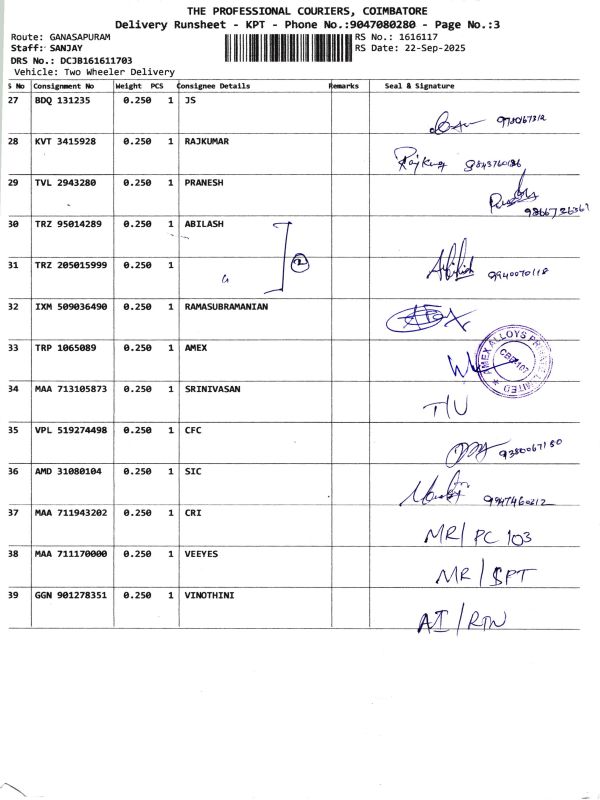 THE PROFESSIONAL COURIERS, COIMBATORE
Delivery Runsheet - KPT - Phone No.:9047080280 - Page No.:3
Route: GANASAPURAM RS No.: 1616117
Staff: SANJAY RS Date: 22-Sep-2025
DRS No.: DCJB161611703
Vehicle: Two Wheeler Delivery
S No Consignment No Weight PCS Consignee Details Remarks Seal & Signature
27 BDQ 131235 0.250 1 JS
28 KVT 3415928 0.250 1 RAJKUMAR Rajkumar 9843760186
29 TVL 2943280 0.250 1 PRANESH
30 TRZ 95014289 0.250 1 ABILASH
31 TRZ 205015999 0.250 1 2 Abilash 9940070118
32 IXM 509036490 0.250 1 RAMASUBRAMANIAN
33 TRP 1065089 0.250 1 AMEX AMEX ALLOYS PRIVATE LIMITED
34 MAA 713105873 0.250 1 SRINIVASAN T/U
35 VPL 519274498 0.250 1 CFC 9380067130
36 AMD 31080104 0.250 1 SIC
37 MAA 711943202 0.250 1 CRI MR/PC 103
38 MAA 711170000 0.250 1 VEEYES MR/SPT
39 GGN 901278351 0.250 1 VINOTHINI AI/RTN